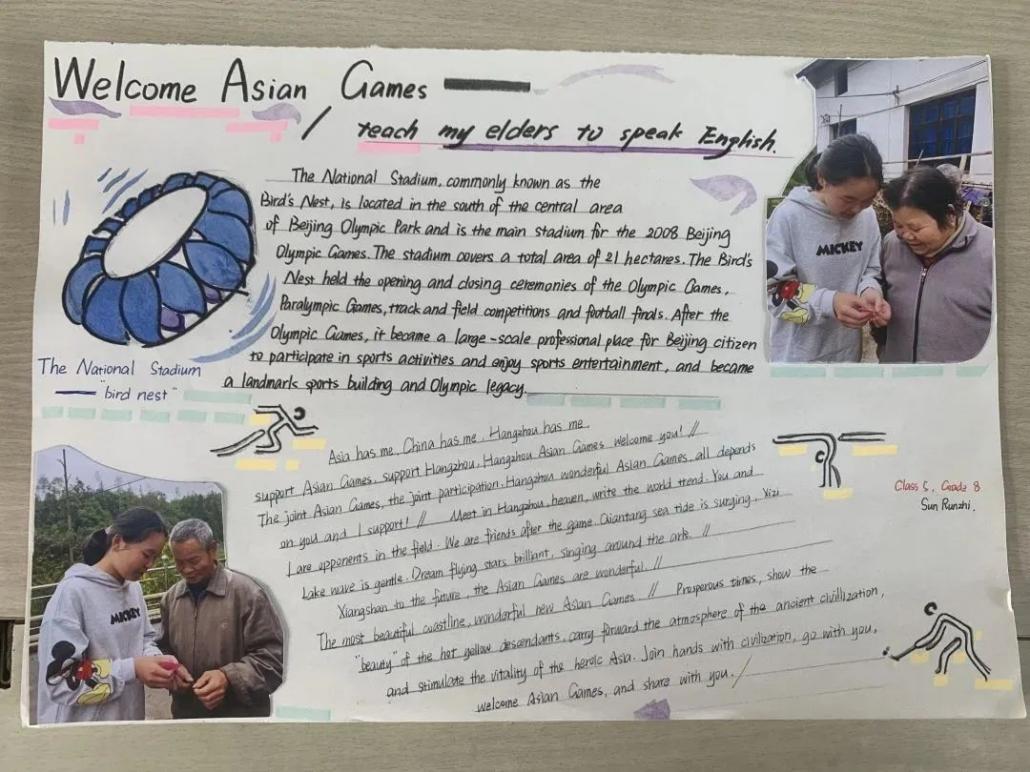 Welcome Asian Games
/ teach my elders to speak English.
The National Stadium, commonly known as the
Bird's Nest, is located in the south of the central area
of Beijing Olympic Park and is the main stadium for the 2008 Beijing
Olympic Games. The stadium covers a total area of 21 hectares. The Bird's
Nest held the opening and closing ceremonies of the Olympic Games,
Paralympic Games, track and field competitions and football finals. After the
Olympic Games, it became a large-scale professional place for Beijing citizen
to participate in sports activities and enjoy sports entertainment, and became
a landmark sports building and Olympic legacy.
The National Stadium
— "bird nest"
MICKEY
Asia has me, China has me, Hangzhou has me,
support Asian Games, support Hangzhou, Hangzhou Asian Games welcome you! //
The joint Asian Games, the joint participation. Hangzhou wonderful Asian Games, all depends
on you and I support! // Meet in Hangzhou, heaven, write the world trend. You and
I are opponents in the field. We are friends after the game. Qiantang sea tide is surging, Xizi
Lake wave is gentle. Dream flying stars brilliant, singing around the ark. //
Xiangshan to the future, the Asian Games are wonderful. //
The most beautiful coastline, wonderful new Asian Games // Prosperous times, show the
"beauty" of the hot yellow descendants, carry forward the atmosphere of the ancient civillization,
and stimulate the vitality of the heroic Asia. Join hands with civilization, go with you,
welcome Asian Games, and share with you. /
Class 5, Grade 8
Sun Runzhi.
MICKEY